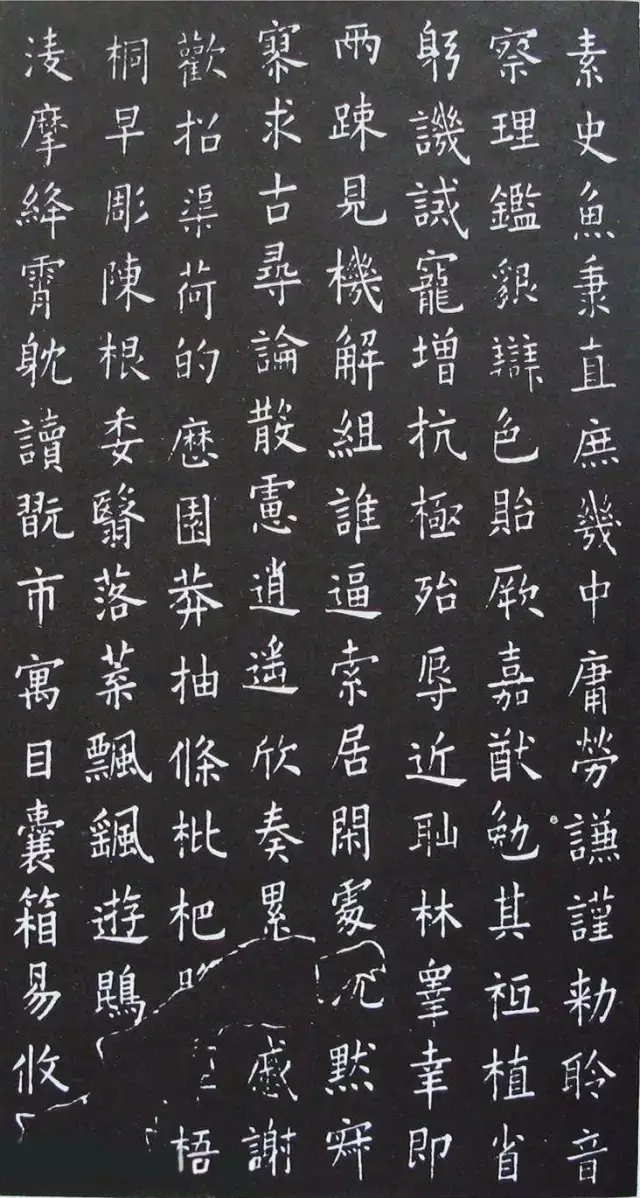 素史魚秉直庶幾中庸勞謙謹勑聆音
察理鑑貌辯色貽厥嘉猷勉其祗植省
躬譏誡寵增抗極殆辱近耻林睪幸即
兩踈見機解組誰逼索居閑處沉默寂
寥求古尋論散慮逍遙欣奏累慼謝
歡招渠荷的歷園莽抽條枇杷梧
桐早彫陳根委翳落葉飄颻遊鵾
淩摩絳霄耽讀翫市寓目囊箱易攸